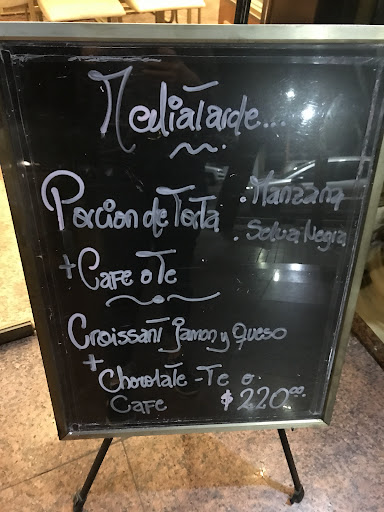 MediaTarde...
Porcion de Torta . Manzana
. Selva Negra
+ Cafe o Te
Croissant jamon y Queso
+
Chocolate - Te o
Cafe $220.00.